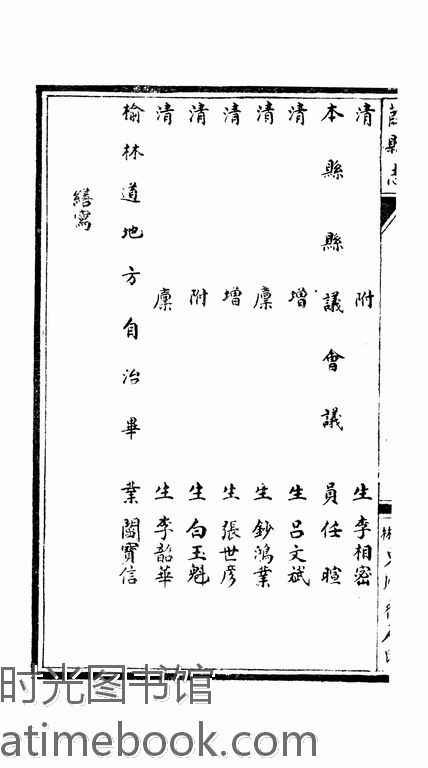 縣志
清附生李相密
本縣縣議會議員任暄
清增生呂文斌
清廩生鈔鴻業
清增生張世彥
清附生白玉魁
清廩生李韶華
榆林道地方自治畢業閻寶信
繕寫
时光图书馆
atimebook.com